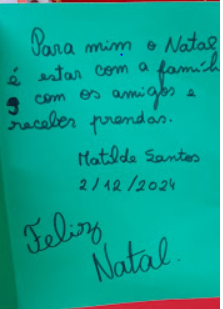 Para mim o Natal
é estar com a famíl
e com os amigos e
receber prendas.
Matilde Santos
2/12/2024
Feliz
Natal.